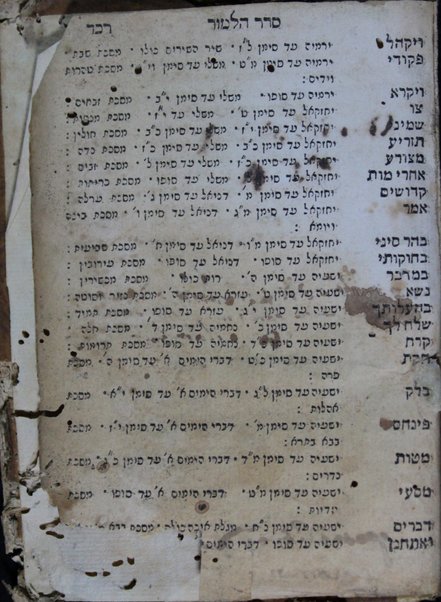 סדר הלמוד רכד
ויקהל ירמיה עד סימן ל״ז · שיר השירים כולו · מסכת שבת ·
פקודי ירמיה עד סימן מ״ט · משלי עד סימן וי׳ · מסכת טהרות
וידים :
ויקרא ירמיה עד סופו · משלי עד סימן י״ב · מסכת זבחים ·
צו יחזקאל עד סימן ט׳ · משלי עד י״ז · מסכת מנחות :
שמיני יחזקאל עד סימן י״ז · משלי עד סימן כ״ב · מסכת חולין :
תזריע יחזקאל עד סימן כ״ב · משלי עד סימן כ״ב · מסכת נדה :
מצורע יחזקאל עד סימן כ״ז · משלי עד סימן ל׳ · מסכת זבים :
אחרי מות יחזקאל עד סימן · משלי עד סופו · מסכת כריתות :
קדושים יחזקאל עד סימן מ׳ · דניאל עד סימן ג׳ · מסכת ערלה :
אמר יחזקאל עד סימן מ״ג · דניאל עד סימן ו׳ · מסכת ביצה
ויומא :
בהר סיני יחזקאל עד סימן מ״ו · דניאל עד סימן ח׳ · מסכת שביעית :
בחוקותי יחזקאל עד סופו · דניאל עד סופו · מסכת עירובין :
במדבר ישעיה עד סימן ה׳ · רות כולו · מסכת מכשירין :
נשא ישעיה עד סימן ט׳ · עזרא עד סימן ה׳ · מסכת נזיר וסוטה :
בהעלותך ישעיה עד סימן · עזרא עד סופו · מסכת תמיד :
שלח לך ישעיה עד סימן כ׳ · נחמיה עד סימן ד׳ · מסכת חלה :
קרח ישעיה עד סימן · נחמיה עד סופו · מסכת תרומות :
חקת ישעיה עד סימן כ״ט · דברי הימים א׳ עד סימן ה׳ · מסכת
פרה :
בלק ישעיה עד סימן ל״ג · דברי הימים א׳ עד סימן י״א · מסכת
אהלות :
פינחס ישעיה עד סימן מ׳ · דברי הימים א׳ עד סימן י״ז · מסכת
בבא בתרא :
מטות ישעיה עד סימן מ״ד · דברי הימים א׳ עד סימן כ״ג · מסכת
נדרים :
מסעי ישעיה עד סימן מ״ט · דברי הימים א׳ עד סופו · מסכת
עדיות :
דברים ישעיה עד סימן נ״ח · מגלת איכה כולה · מסכת בבא
ואתחנן ישעיה עד סופו · דברי הימים